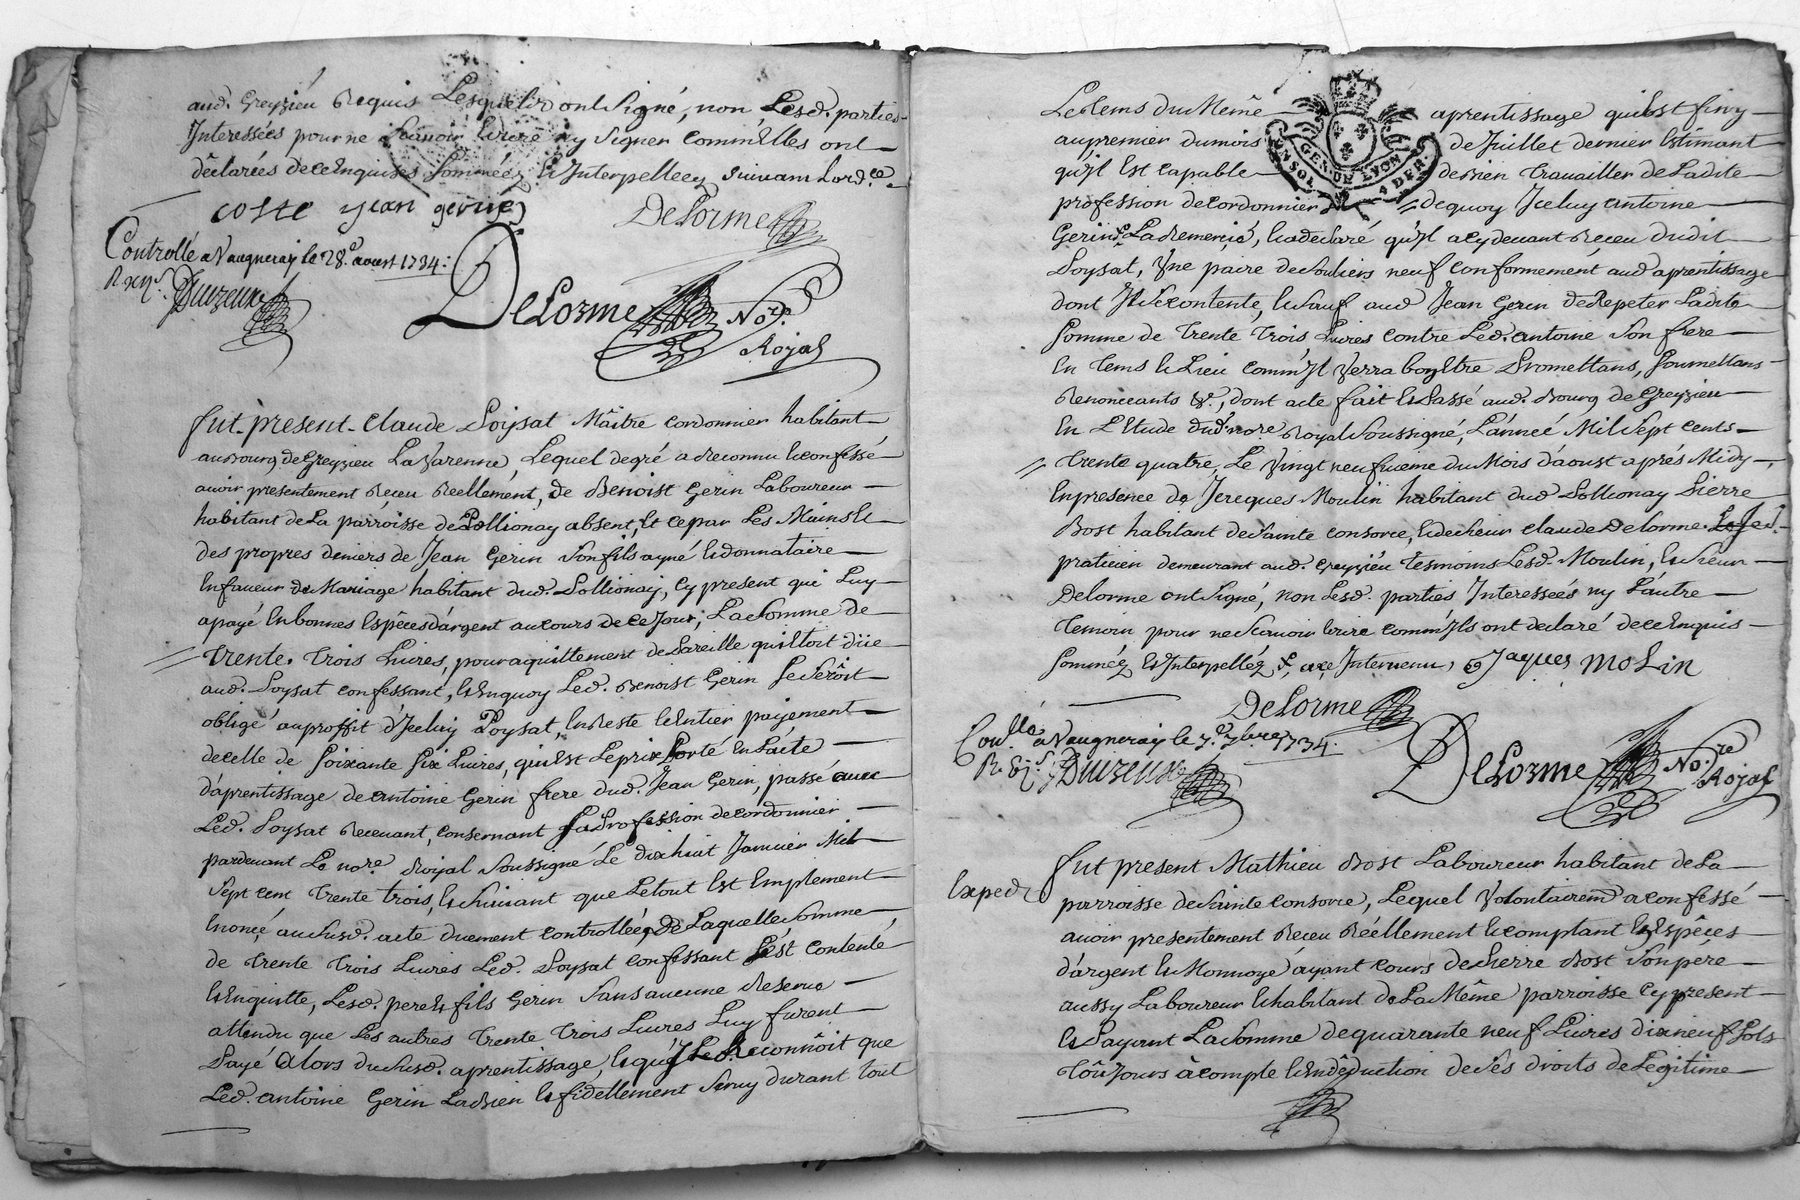 aud. Greyzieu Requis Lesquels ont signé, non Lesd. parties
Interessées pour ne sçauoir Ecrire ny signer comm'Elles ont
déclarées de ce Enquises sommées et Interpellees suiuant Lord.ce
coste jean gerin Delorme
Controllé a Vaugneray le 28.e aoust 1734:
Duuzeux
Delorme No.re
Royal
fut present Claude Poysat Maître cordonnier habitant
au Bourg de Greyzieu La Varenne, Lequel de gré a reconnu et confessé
auoir presentement Receu Reellement, de Benoist Gerin Laboureur
habitant de La parroisse de Pollionay absent, Et ce par Les Mains Et
des propres deniers de Jean Gerin son fils ayné et donnataire
En faueur de Mariage habitant dud. Pollionay, cy present qui Luy
a payé En bonnes Espéces d'argent au cours de ce Jour, La somme de
Trente Trois Liures, pour aquittement de Pareille qui Etoit düe
aud. Poysat confessant, et En quoy Led. Benoist Gerin se Seroit
obligé au proffit d'Jceluy Poysat, En Reste et Entier payement
de celle de soixante six Liures, qui Est Le prix Porté En L'acte
d'aprentissage de antoine Gerin frere dud. Jean Gerin, passé auec
Led. Poysat Receuant, consernant sa Profession de cordonnier
pardeuant Le no.re Royal soussigné Le dix huit Januier Mil
sept cent Trente trois, et suiuant que Le tout Est Emplement
Enoncé au susd. acte duement controllée, De Laquelle somme
de Trente Trois Liures Led. Poysat confessant s'est contenté
et En quitte, Lesd. pere et fils Gerin sans aucune Reserue
attendu que Les autres Trente Trois Liures Luy furent
Payé alors du susd. aprentissage, et qu'Jl Reconnôit que
Led. antoine Gerin La Bien et fidellement seruy durant tout
Le Tems du Même aprentissage qui Est finy
au premier du mois de Juillet dernier Estimant
qu'Jl Est capable de Bien Trauailler de Ladite
profession de cordonnier de quoy Jceluy antoine
GEN. DE LYON
EN SOL 4 DER.
Gerin La Remercié, et a declaré qu'Jl a cy deuant Receu dudit
Poysat, Vne paire de souliers neuf conformement aud aprentissage
dont Jl se contente, et sauf aud Jean Gerin de Repeter Ladite
somme de Trente Trois Liures contre Led. antoine son frere
En Tems et Lieu comm'Jl Verra bon Etre Promettans, soumettans
Renonceants &., dont acte fait et Passé aud. Bourg de Greyzieu
En L'Etude dud. no.re Royal soussigné, L'anneé Mil sept cents
Trente quatre, Le Vingt neufuieme du Mois d'aoust aprés Midy
En presence de Jecques Moulin habitant dud Pollionay Pierre
Bost habitant de sainte consorce, et de sieur claude Delorme
praticien demeurant aud. Greyzieu tesmoins Lesd. Moulin, et sieur
Delorme ont signé, non Lesd. parties Interessées ny L'autre
Temoin pour ne sçauoir Ecrire comm'Jls ont declaré de ce Enquis
sommés et Interpellés Jaques moLin
Delorme
Con.llé a Vaugneray le 7.e 7bre 1734.
Duuzeux
Delorme No.re
Royal
fut present Mathieu Bost Laboureur habitant de La
Exped
parroisse de sainte consorce, Lequel Volontairem.t a confessé
auoir presentement Receu Réellement et comptant En Espêces
d'argent et Monnoye ayant cours de Pierre Bost son pére
aussy Laboureur et habitant de La Même parroisse cy present
et Payant La somme de quarante neuf Liures dix neuf sols
Tôujours à compte et En dêduction de sés droits de Legitime